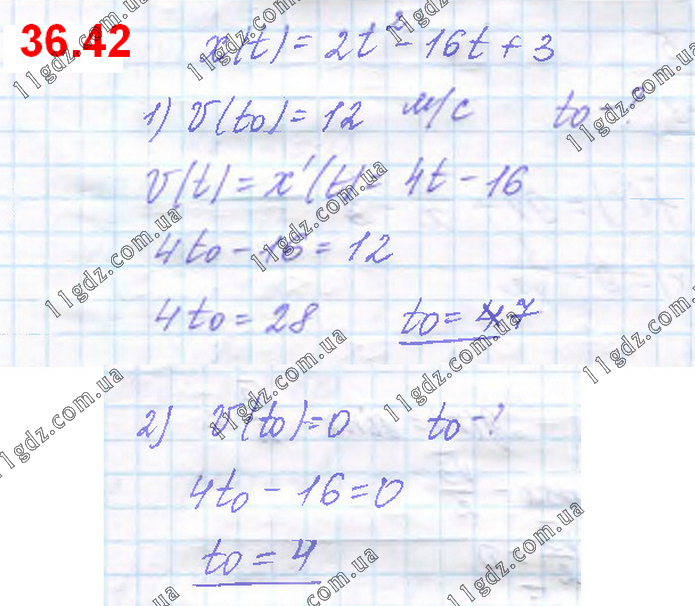 36.42
x(t) = 2t² - 16t + 3
1) v(t₀) = 12 м/с t₀ - ?
v(t) = x'(t) = 4t - 16
4t₀ - 16 = 12
4t₀ = 28 t₀ = 7
2) v(t₀) = 0 t₀ - ?
4t₀ - 16 = 0
t₀ = 4
11gdz.com.ua